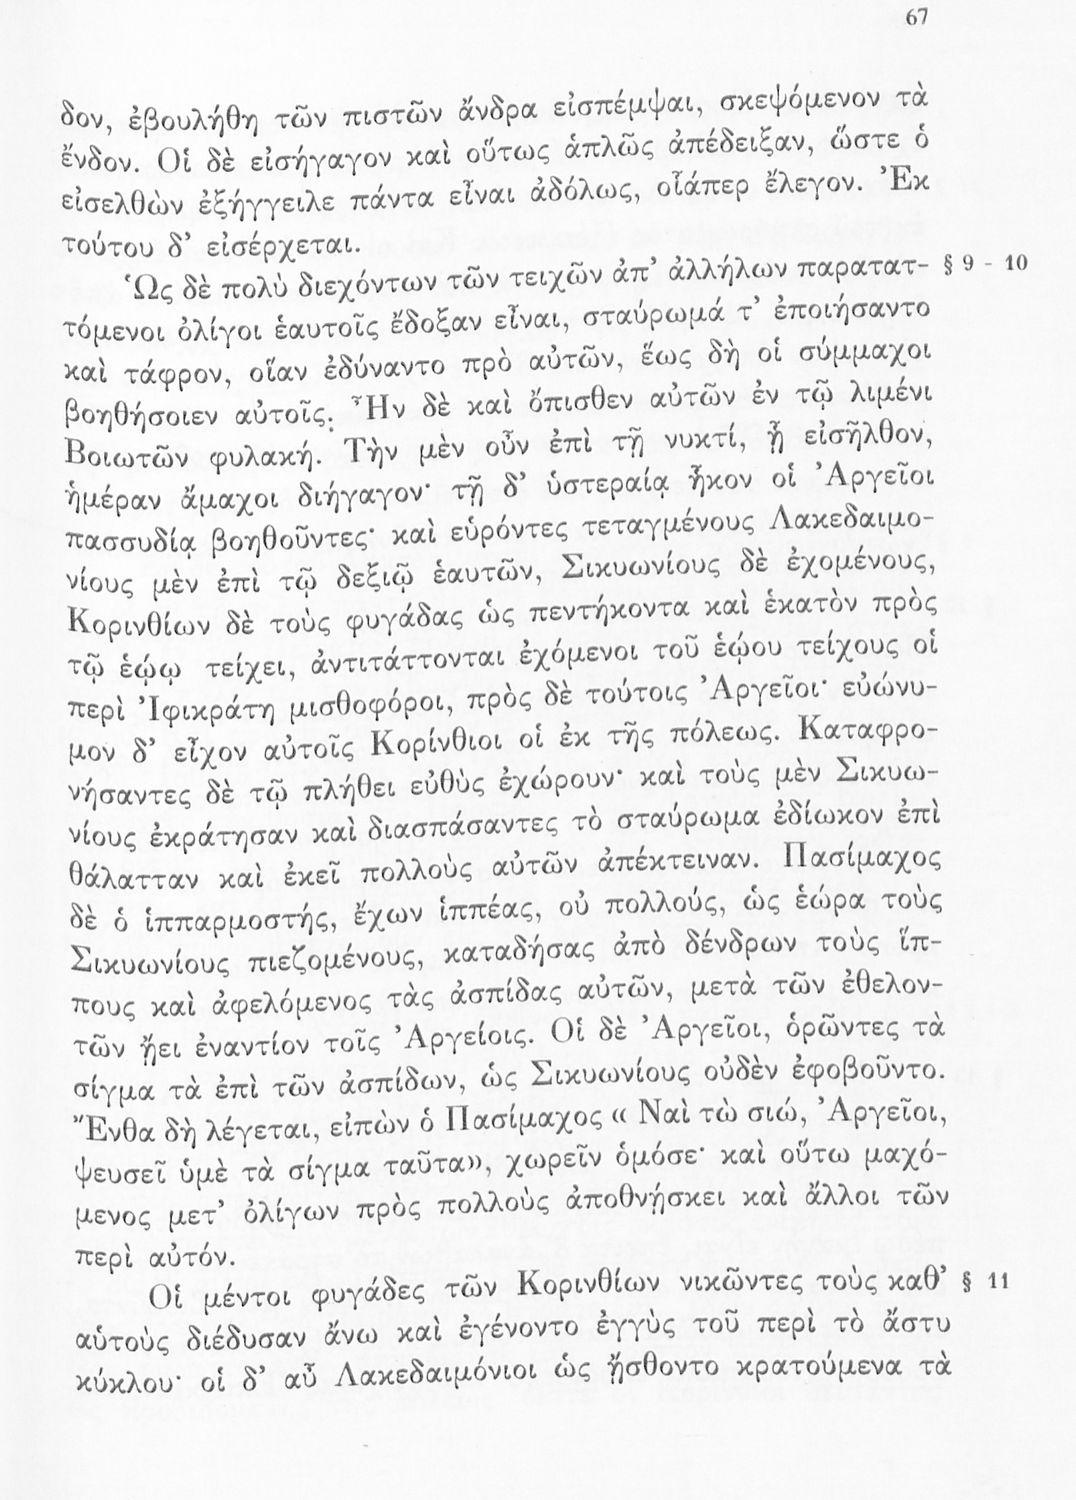 67
δον, ἐβουλήθη τῶν πιστῶν ἄνδρα εἰσπέμψαι, σκεψόμενον τὰ
ἔνδον. Οἱ δὲ εἰσήγαγον καὶ οὕτως ἁπλῶς ἀπέδειξαν, ὥστε ὁ
εἰσελθὼν ἐξήγγειλε πάντα εἶναι ἀδόλως, οἷάπερ ἔλεγον. Ἐκ
τούτου δ’ εἰσέρχεται.
Ὡς δὲ πολὺ διεχόντων τῶν τειχῶν ἀπ’ ἀλλήλων παρατατ- § 9 - 10
τόμενοι ὀλίγοι ἑαυτοῖς ἔδοξαν εἶναι, σταύρωμά τ’ ἐποιήσαντο
καὶ τάφρον, οἵαν ἐδύναντο πρὸ αὐτῶν, ἕως δὴ οἱ σύμμαχοι
βοηθήσοιεν αὐτοῖς. Ἦν δὲ καὶ ὄπισθεν αὐτῶν ἐν τῷ λιμένι
Βοιωτῶν φυλακή. Τὴν μὲν οὖν ἐπὶ τῇ νυκτί, ᾗ εἰσῆλθον,
ἡμέραν ἄμαχοι διήγαγον· τῇ δ’ ὑστεραίᾳ ἧκον οἱ Ἀργεῖοι
πασσυδίᾳ βοηθοῦντες· καὶ εὑρόντες τεταγμένους Λακεδαιμο-
νίους μὲν ἐπὶ τῷ δεξιῷ ἑαυτῶν, Σικυωνίους δὲ ἐχομένους,
Κορινθίων δὲ τοὺς φυγάδας ὡς πεντήκοντα καὶ ἑκατὸν πρὸς
τῷ ἑῴῳ τείχει, ἀντιτάττονται ἐχόμενοι τοῦ ἑῴου τείχους οἱ
περὶ Ἰφικράτη μισθοφόροι, πρὸς δὲ τούτοις Ἀργεῖοι· εὐώνυ-
μον δ’ εἶχον αὐτοῖς Κορίνθιοι οἱ ἐκ τῆς πόλεως. Καταφρο-
νήσαντες δὲ τῷ πλήθει εὐθὺς ἐχώρουν· καὶ τοὺς μὲν Σικυω-
νίους ἐκράτησαν καὶ διασπάσαντες τὸ σταύρωμα ἐδίωκον ἐπὶ
θάλατταν καὶ ἐκεῖ πολλοὺς αὐτῶν ἀπέκτειναν. Πασίμαχος
δὲ ὁ ἱππαρμοστής, ἔχων ἱππέας, οὐ πολλούς, ὡς ἑώρα τοὺς
Σικυωνίους πιεζομένους, καταδήσας ἀπὸ δένδρων τοὺς ἵπ-
πους καὶ ἀφελόμενος τὰς ἀσπίδας αὐτῶν, μετὰ τῶν ἐθελον-
τῶν ᾔει ἐναντίον τοῖς Ἀργείοις. Οἱ δὲ Ἀργεῖοι, ὁρῶντες τὰ
σίγμα τὰ ἐπὶ τῶν ἀσπίδων, ὡς Σικυωνίους οὐδὲν ἐφοβοῦντο.
Ἔνθα δὴ λέγεται, εἰπὼν ὁ Πασίμαχος « Ναὶ τὼ σιώ, Ἀργεῖοι,
ψευσεῖ ὑμὲ τὰ σίγμα ταῦτα», χωρεῖν ὁμόσε· καὶ οὕτω μαχό-
μενος μετ’ ὀλίγων πρὸς πολλοὺς ἀποθνῄσκει καὶ ἄλλοι τῶν
περὶ αὐτόν.
Οἱ μέντοι φυγάδες τῶν Κορινθίων νικῶντες τοὺς καθ’ § 11
αὑτοὺς διέδυσαν ἄνω καὶ ἐγένοντο ἐγγὺς τοῦ περὶ τὸ ἄστυ
κύκλου· οἱ δ’ αὖ Λακεδαιμόνιοι ὡς ᾔσθοντο κρατούμενα τὰ